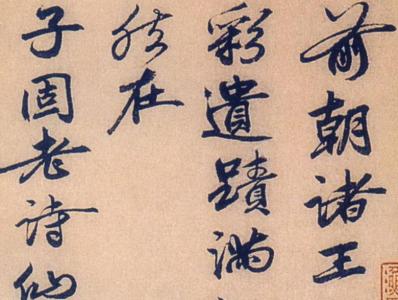 前朝諸王
彩遺蹟滿
然在
子固老詩仙